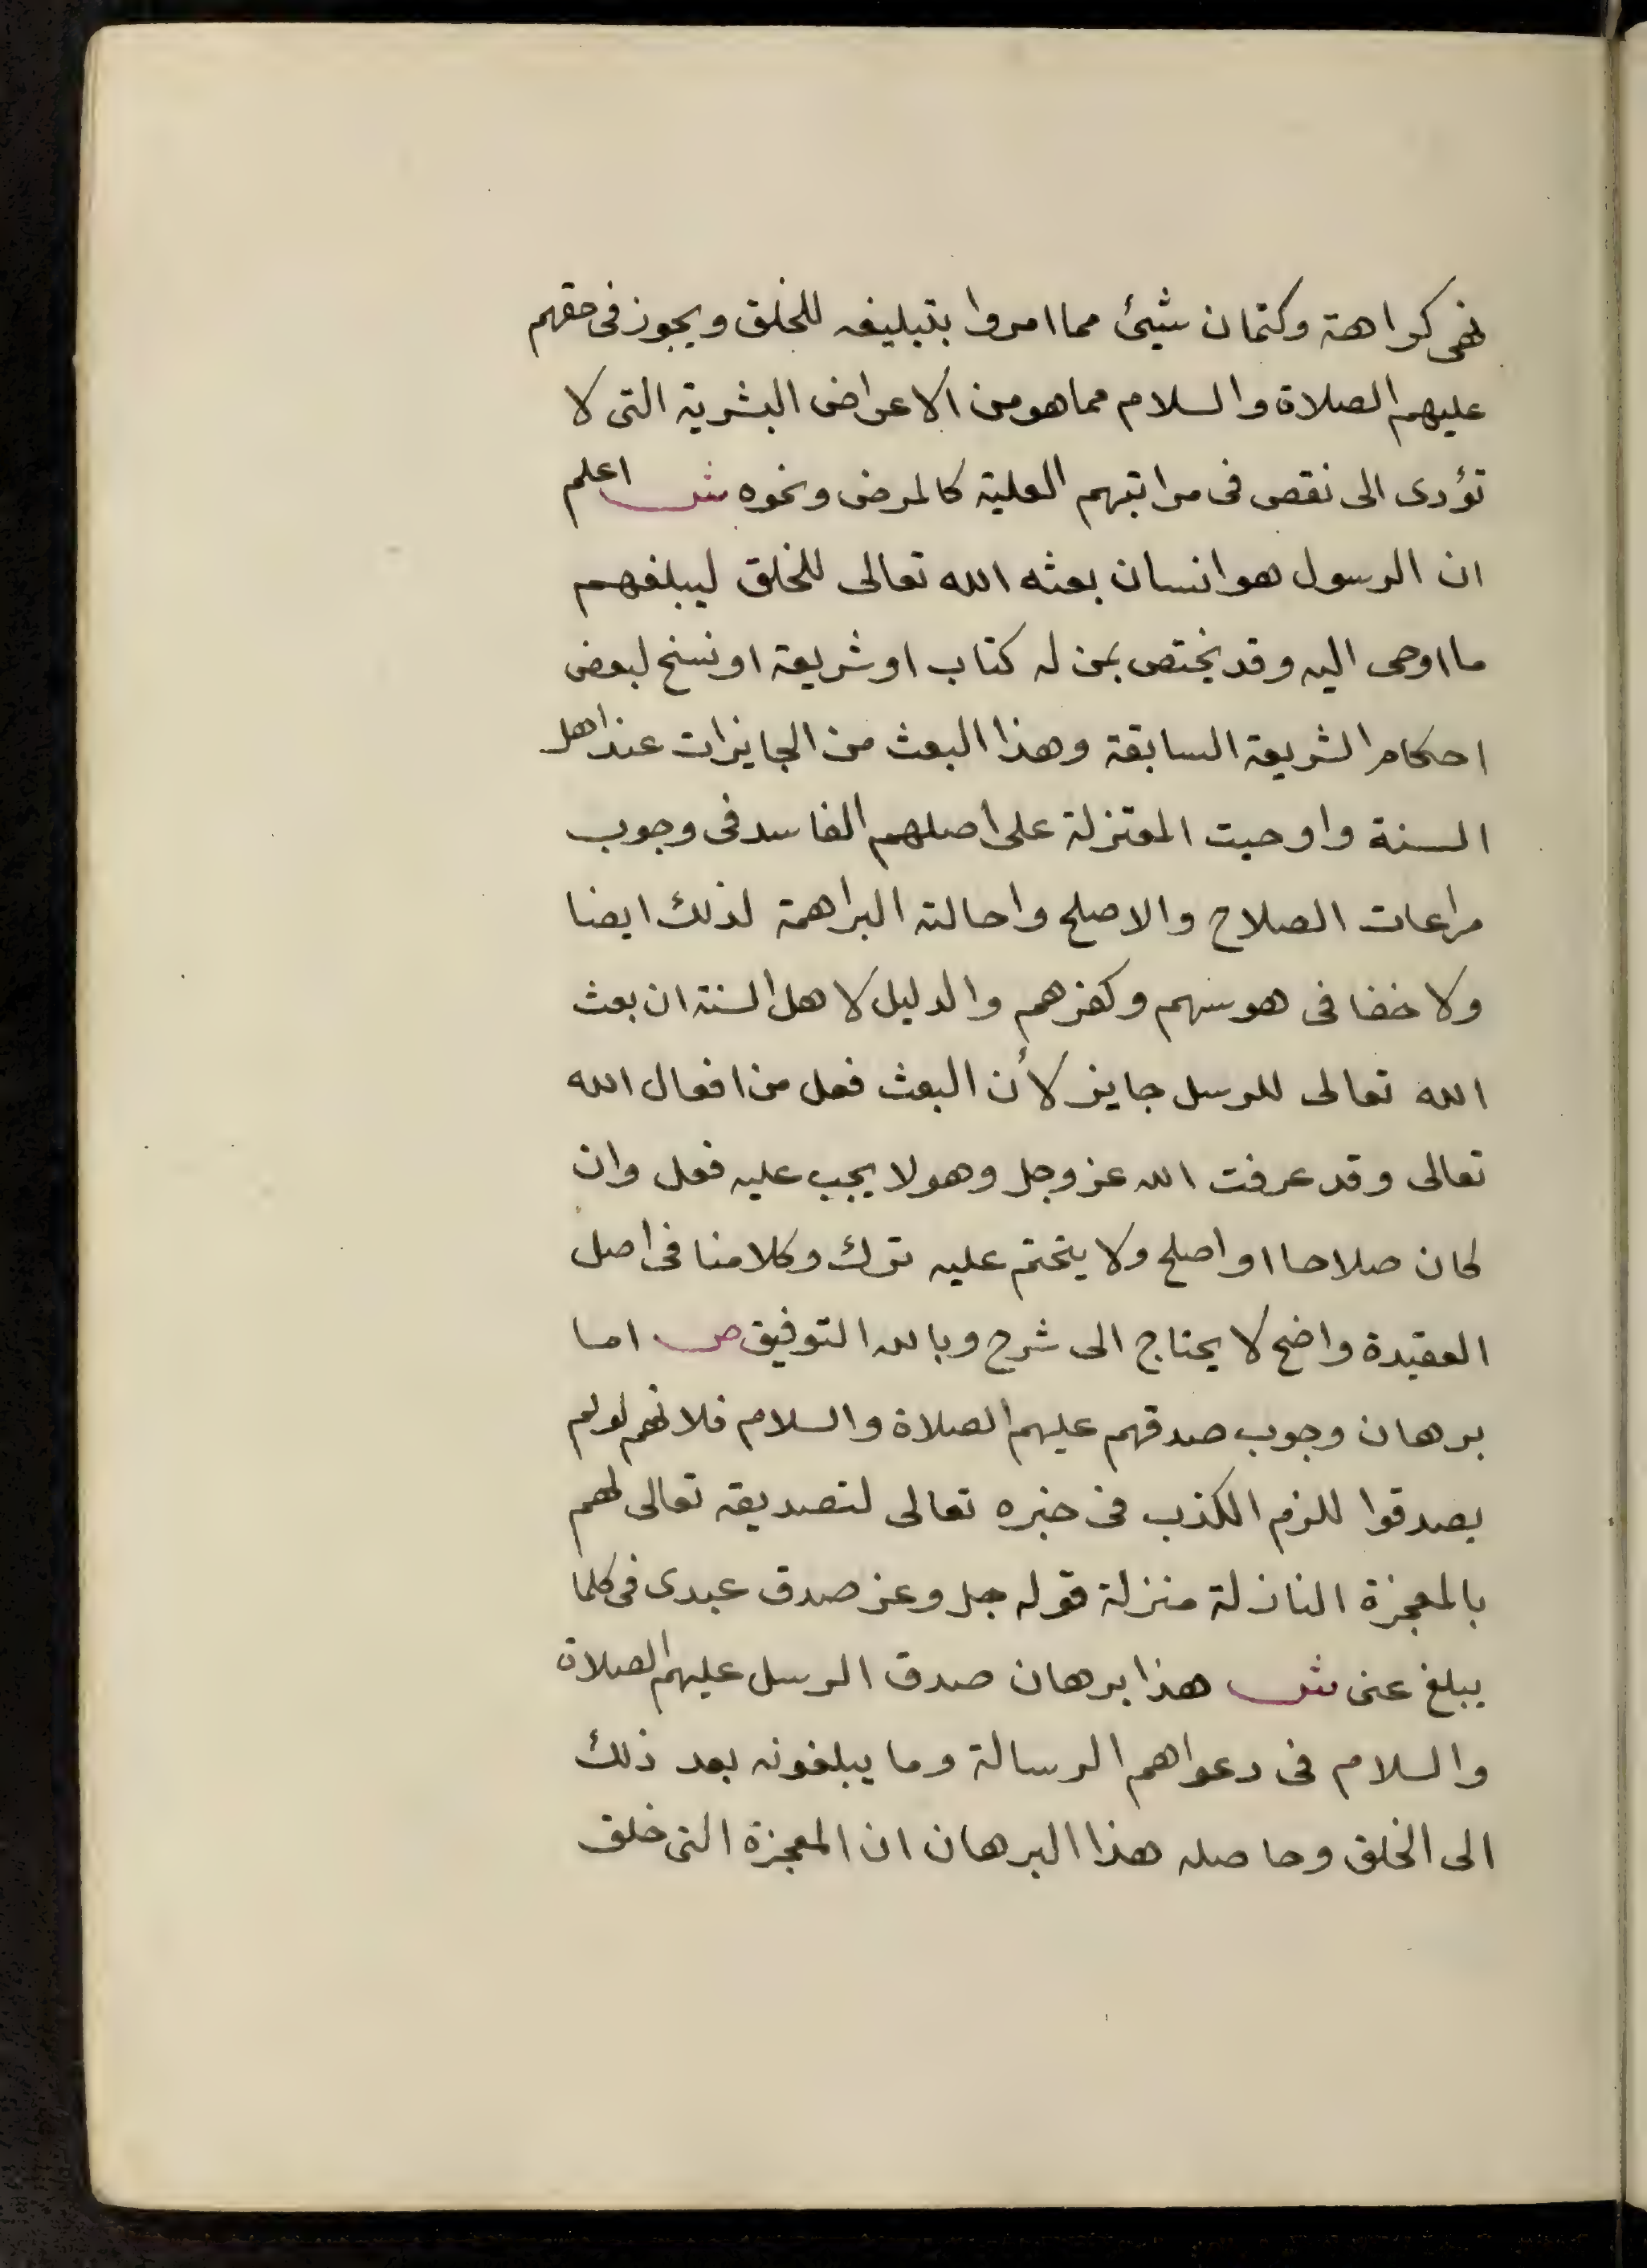 نهى كراهة وكتمان شيئ مما امروا بتبليغه للخلق ويجوز فى حقهم
عليهم الصلاة والسلام مما هو من الاعراض البشرية التى لا
تؤدى الى نقص فى مراتبهم العلية كالمرض ونحوه ش اعلم
ان الرسول هو انسان بعثه الله تعالى للخلق ليبلغهم
ما اوحى اليه وقد يختص بمن له كتاب او شريعة او نسخ لبعض
احكام الشريعة السابقة وهذا البعث من الجايزات عند اهل
السنة واوجبت المعتزلة على اصلهم الفاسد فى وجوب
مراعات الصلاح والاصلح واحالته البراهمة لذلك ايضا
ولا خفا فى هوسهم وكفرهم والدليل لاهل السنة ان بعث
الله تعالى للرسل جايز لأن البعث فعل من افعال الله
تعالى وقد عرفت الله عز وجل وهو لا يجب عليه فعل وان
كان صلاحا او اصلح ولا يتحتم عليه ترك وكلامنا فى اصل
العقيدة واضح لا يحتاج الى شرح وبالله التوفيق ص اما
برهان وجوب صدقهم عليهم الصلاة والسلام فلانهم لو لم
يصدقوا للزم الكذب فى خبره تعالى لتصديقه تعالى لهم
بالمعجزة النازلة منزلة قوله جل وعز صدق عبدى فى كلما
يبلغ عنى ش هذا برهان صدق الرسل عليهم الصلاة
والسلام فى دعواهم الرسالة وما يبلغونه بعد ذلك
الى الخلق وحاصله هذا البرهان ان المعجزة التى خلق